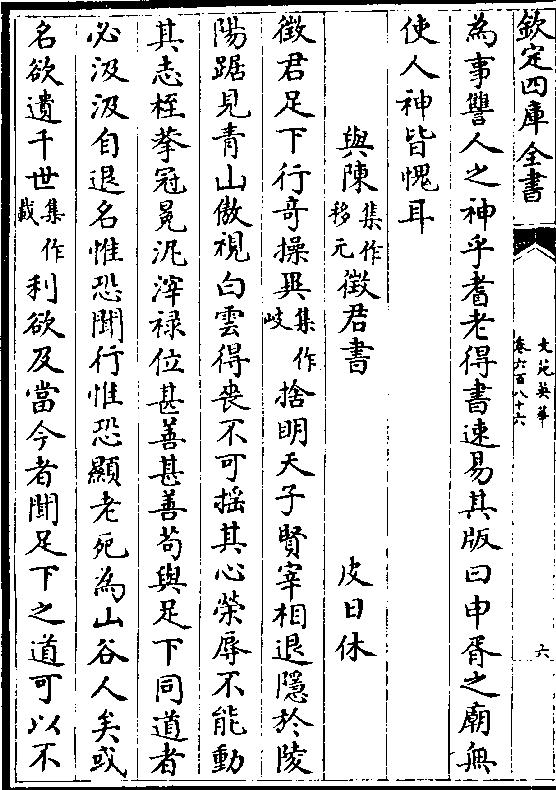 欽定四庫全書
文苑英華
卷六百八十六
六
為事讐人之神乎耆老得書速易其版曰申胥之廟無
使人神皆愧耳
與陳集作移元徵君書 皮日休
徵君足下行奇操異集作歧捨明天子賢宰相退隱於陵
陽踞見青山傲視白雲得喪不可揺其心榮辱不能動
其志桎拲冠冕泥滓禄位甚善甚善苟與足下同道者
必汲汲自退名惟恐聞行惟恐顯老死為山谷人矣或
名欲遺千世集作載利欲及當今者聞足下之道可以不